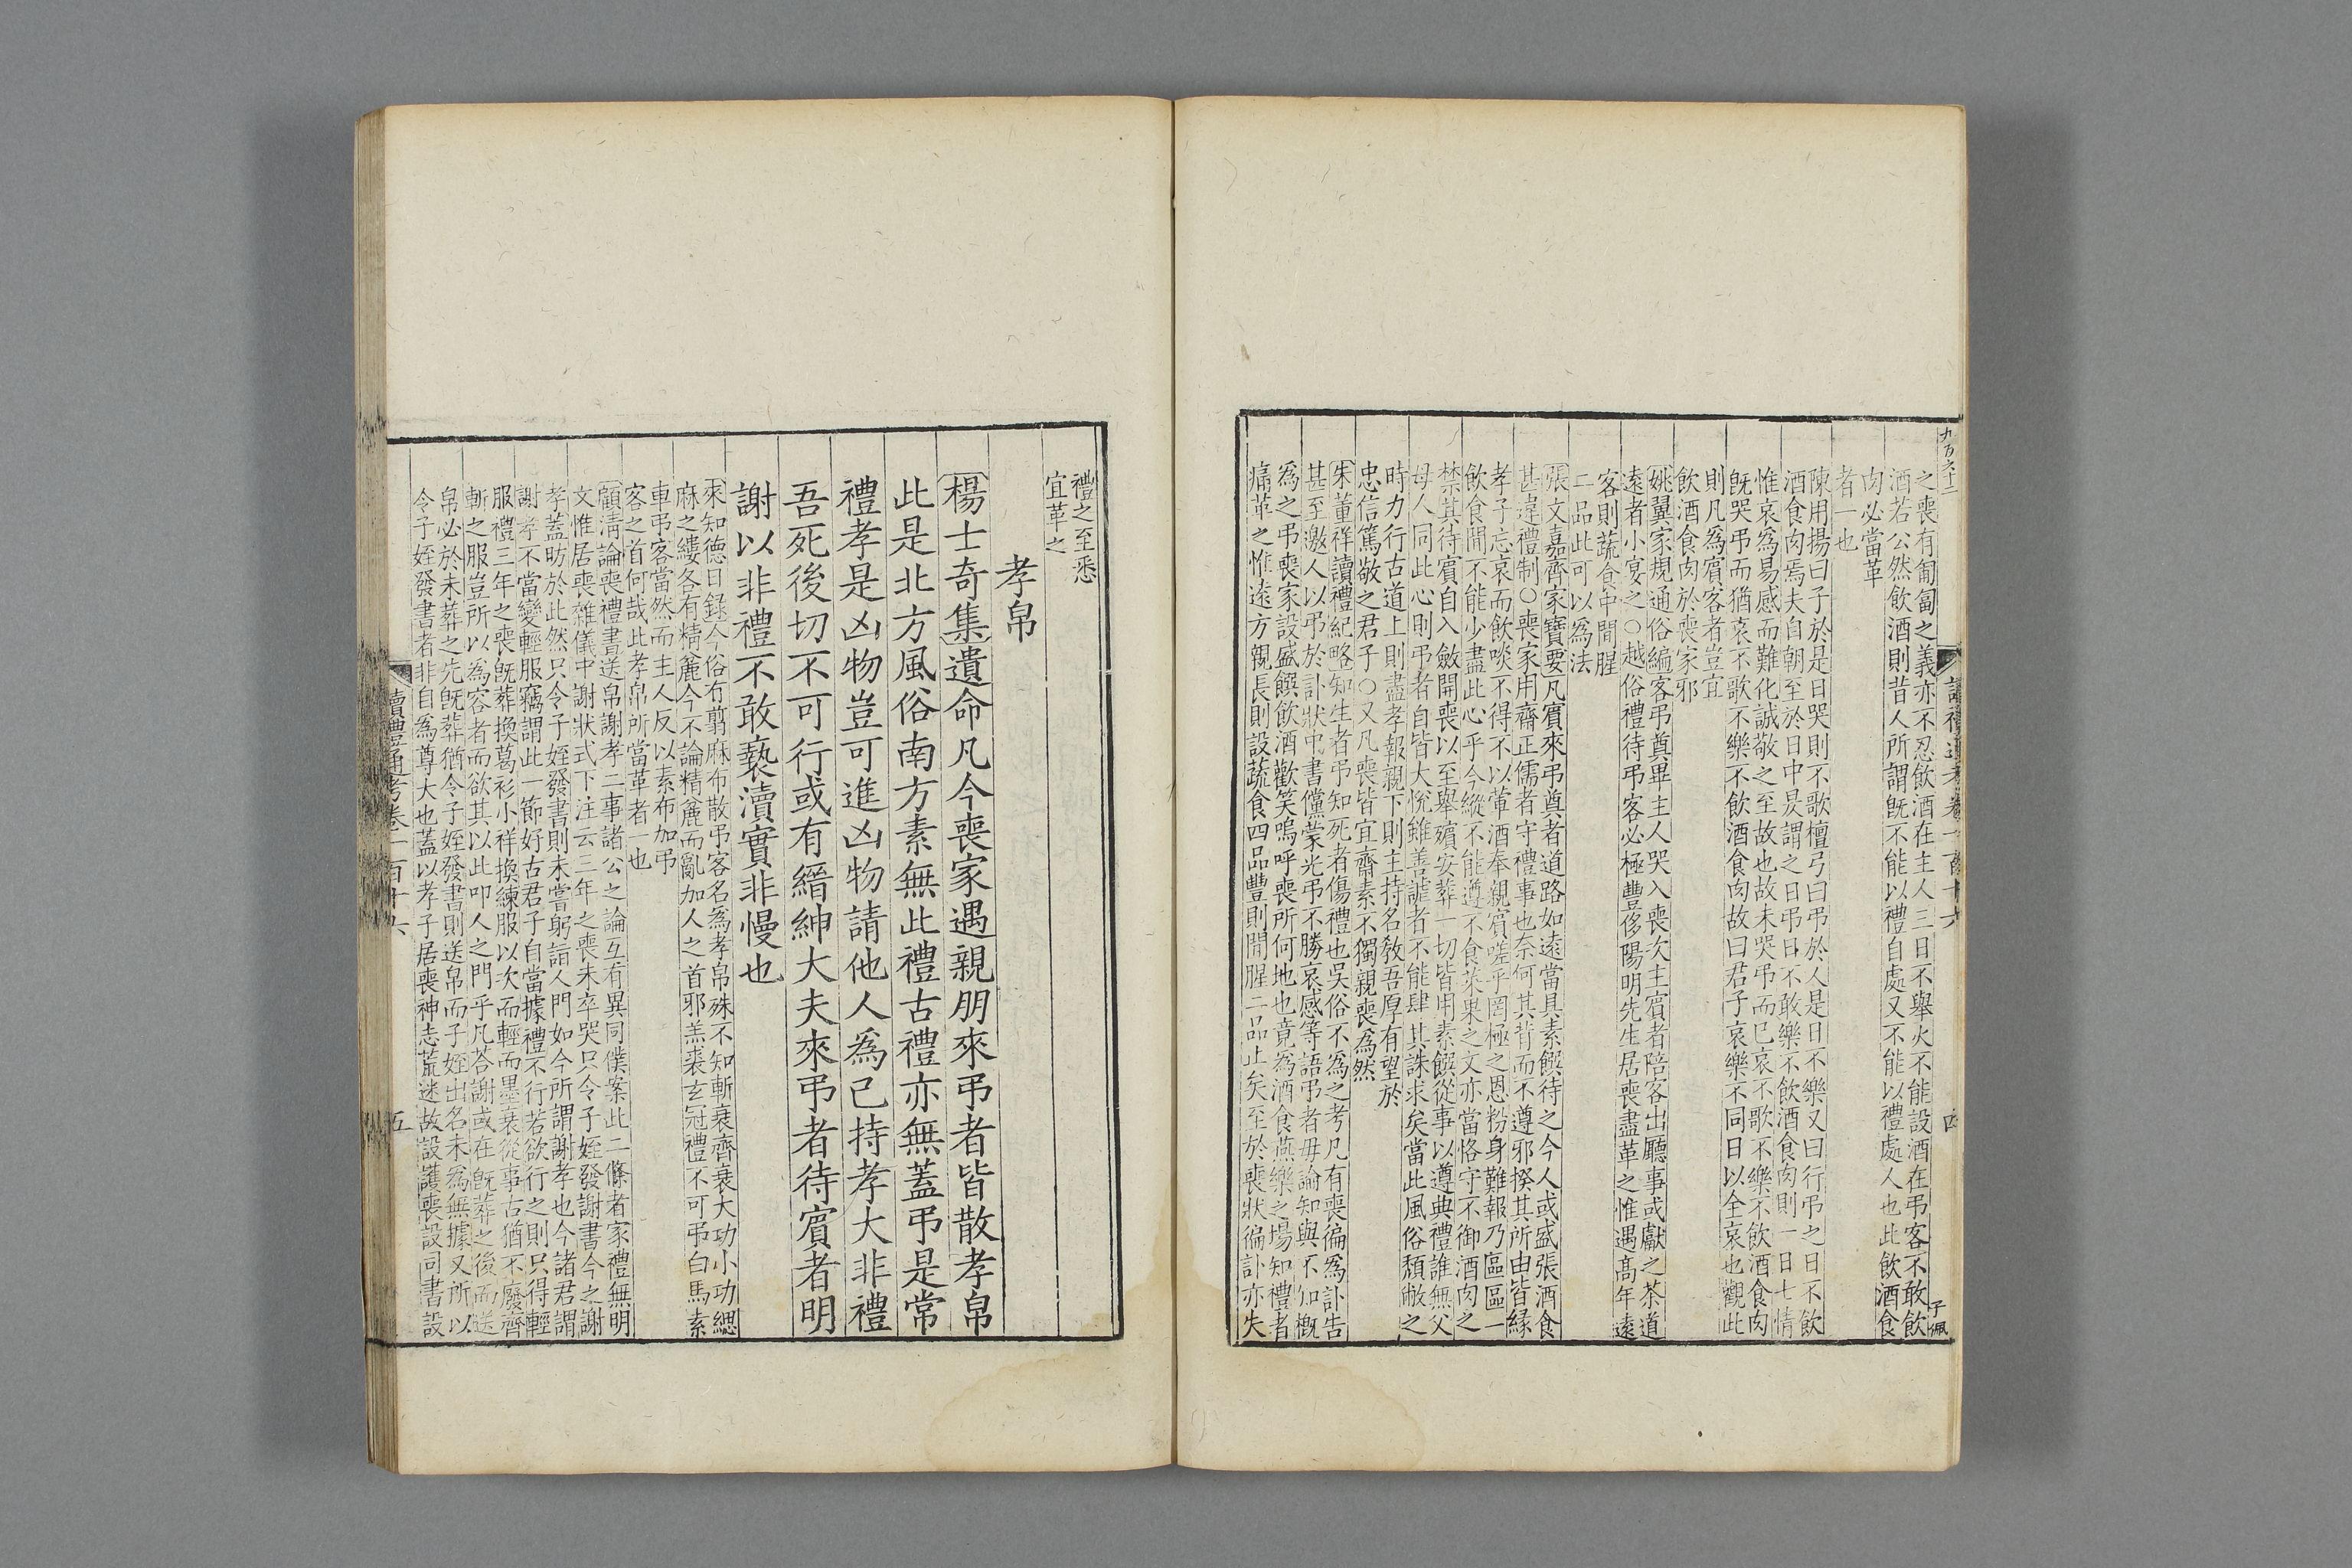 九百六十二
讀禮通考卷一百十六
四
子佩
之喪有匍匐之義亦不忍飲酒在主人三日不舉火不能設酒在弔客不敢飲
酒若公然飲酒則昔人所謂旣不能以禮自處又不能以禮處人也此飲酒食
肉必當革
者一也
陳用揚曰子於是日哭則不歌檀弓曰弔於人是日不樂又曰行弔之日不飲
酒食肉焉夫自朝至於日中是謂之日弔日不敢樂不飲酒食肉則一日七情
惟哀爲易感而難化誠敬之至故也故未哭弔而已哀不歌不樂不飲酒食肉
旣哭弔而猶哀不歌不樂不飲酒食肉故曰君子哀樂不同日以全哀也觀此
則凡爲賓客者豈宜
飲酒食肉於喪家邪
姚翼家規通俗編客弔奠畢主人哭入喪次主賓者陪客出廳事或獻之茶道
遠者小宴之○越俗禮待弔客必極豐侈陽明先生居喪盡革之惟遇高年遠
客則蔬食中間腥
二品此可以爲法
張文嘉齊家寶要凡賓來弔奠者道路如遠當具素饌待之今人或盛張酒食
甚違禮制○喪家用齋正儒者守禮事也奈何其背而不遵邪揆其所由皆緣
孝子忘哀而飲啖不得不以葷酒奉親賓嗟乎罔極之恩粉身難報乃區區一
飲食間不能少盡此心乎今縱不能遵不食菜果之文亦當恪守不御酒肉之
禁其待賓自入斂開喪以至舉殯安葬一切皆用素饌從事以遵典禮誰無父
母人同此心則弔者自皆大悅雖善謔者不能肆其誅求矣當此風俗頹敝之
時力行古道上則盡孝報親下則主持名敎吾厚有望於
忠信篤敬之君子○又凡喪皆宜齋素不獨親喪爲然
朱董祥讀禮紀略知生者弔知死者傷禮也吳俗不為之考凡有喪徧爲訃告
甚至邀人以弔於訃狀中書儻蒙光弔不勝哀感等語弔者毋論知與不知槪
爲之弔喪家設盛饌飲酒歡笑嗚呼喪所何地也竟爲酒食燕樂之場知禮者
痛革之惟遠方親長則設蔬食四品豐則間腥二品止矣至於喪狀徧訃亦失
禮之至悉
宜革之
孝帛
楊士奇集遺命凡今喪家遇親朋來弔者皆散孝帛
此是北方風俗南方素無此禮古禮亦無蓋弔是常
禮孝是凶物豈可進凶物請他人爲己持孝大非禮
吾死後切不可行或有縉紳大夫來弔者待賓者明
謝以非禮不敢褻瀆實非慢也
來知德日錄今俗有翦麻布散弔客名爲孝帛殊不知斬衰齊衰大功小功緦
麻之縷各有精麄今不論精麄而亂加人之首邪羔裘玄冠禮不可弔白馬素
車弔客當然而主人反以素布加弔
客之首何哉此孝帛所當革者一也
顧淸論喪禮書送帛謝孝二事諸公之論互有異同僕案此二條者家禮無明
文惟居喪雜儀中謝狀式下注云三年之喪未卒哭只令子姪發謝書今之謝
孝蓋昉於此然只令子姪發書則未嘗躬詣人門如今所謂謝孝也今諸君謂
謝孝不當變輕服竊謂此一節好古君子自當據禮不行若欲行之則只得輕
服禮三年之喪旣葬換葛衫小祥換練服以次而輕而墨衰從事古猶不廢齊
斬之服豈所以爲容者而欲其以此叩人之門乎凡荅謝或在旣葬之後而送
帛必於未葬之先旣葬猶令子姪發書則送帛而子姪出名未爲無據又所以
令子姪發書者非自爲尊大也蓋以孝子居喪神志荒迷故設護喪設司書設
讀禮通考卷一百十六
五